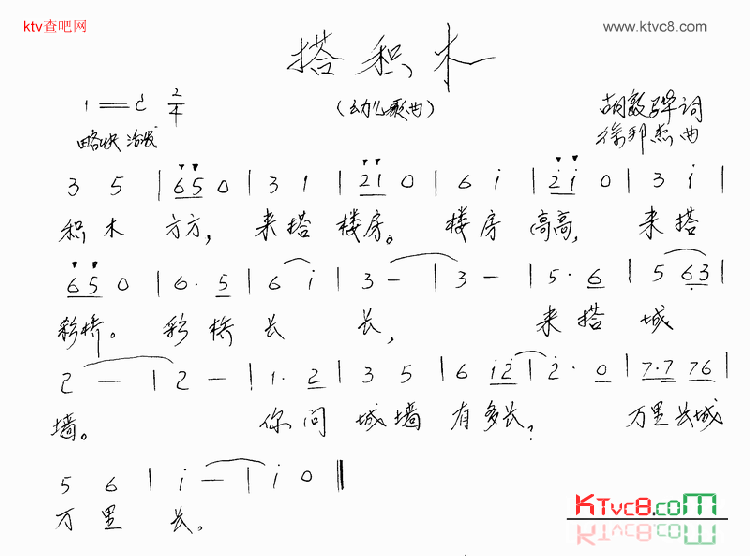 ktv查吧网
www.ktvc8.com
搭积木
1=C 2/4
(幼儿歌曲)
胡敦骅词
略快 活泼
徐邦杰曲
3 5 | 6 5 0 | 3 1 | 2 1 0 | 6 i | 2 i 0 | 3 i |
积木 方方，来搭楼房。楼房高高，来搭
6 5 0 | 6. 5 | 6 i | 3 — | 3 — | 5. 6 | 5 6 3 |
彩桥。彩桥长长，来搭城
2 — | 2 — | 1. 2 | 3 5 | 6 i 2 | 2. 0 | 7.7 7 6 |
墙。你问城墙有多长？万里长城
5 6 | i — | i 0 ‖
万里长。
KTVC8.COM